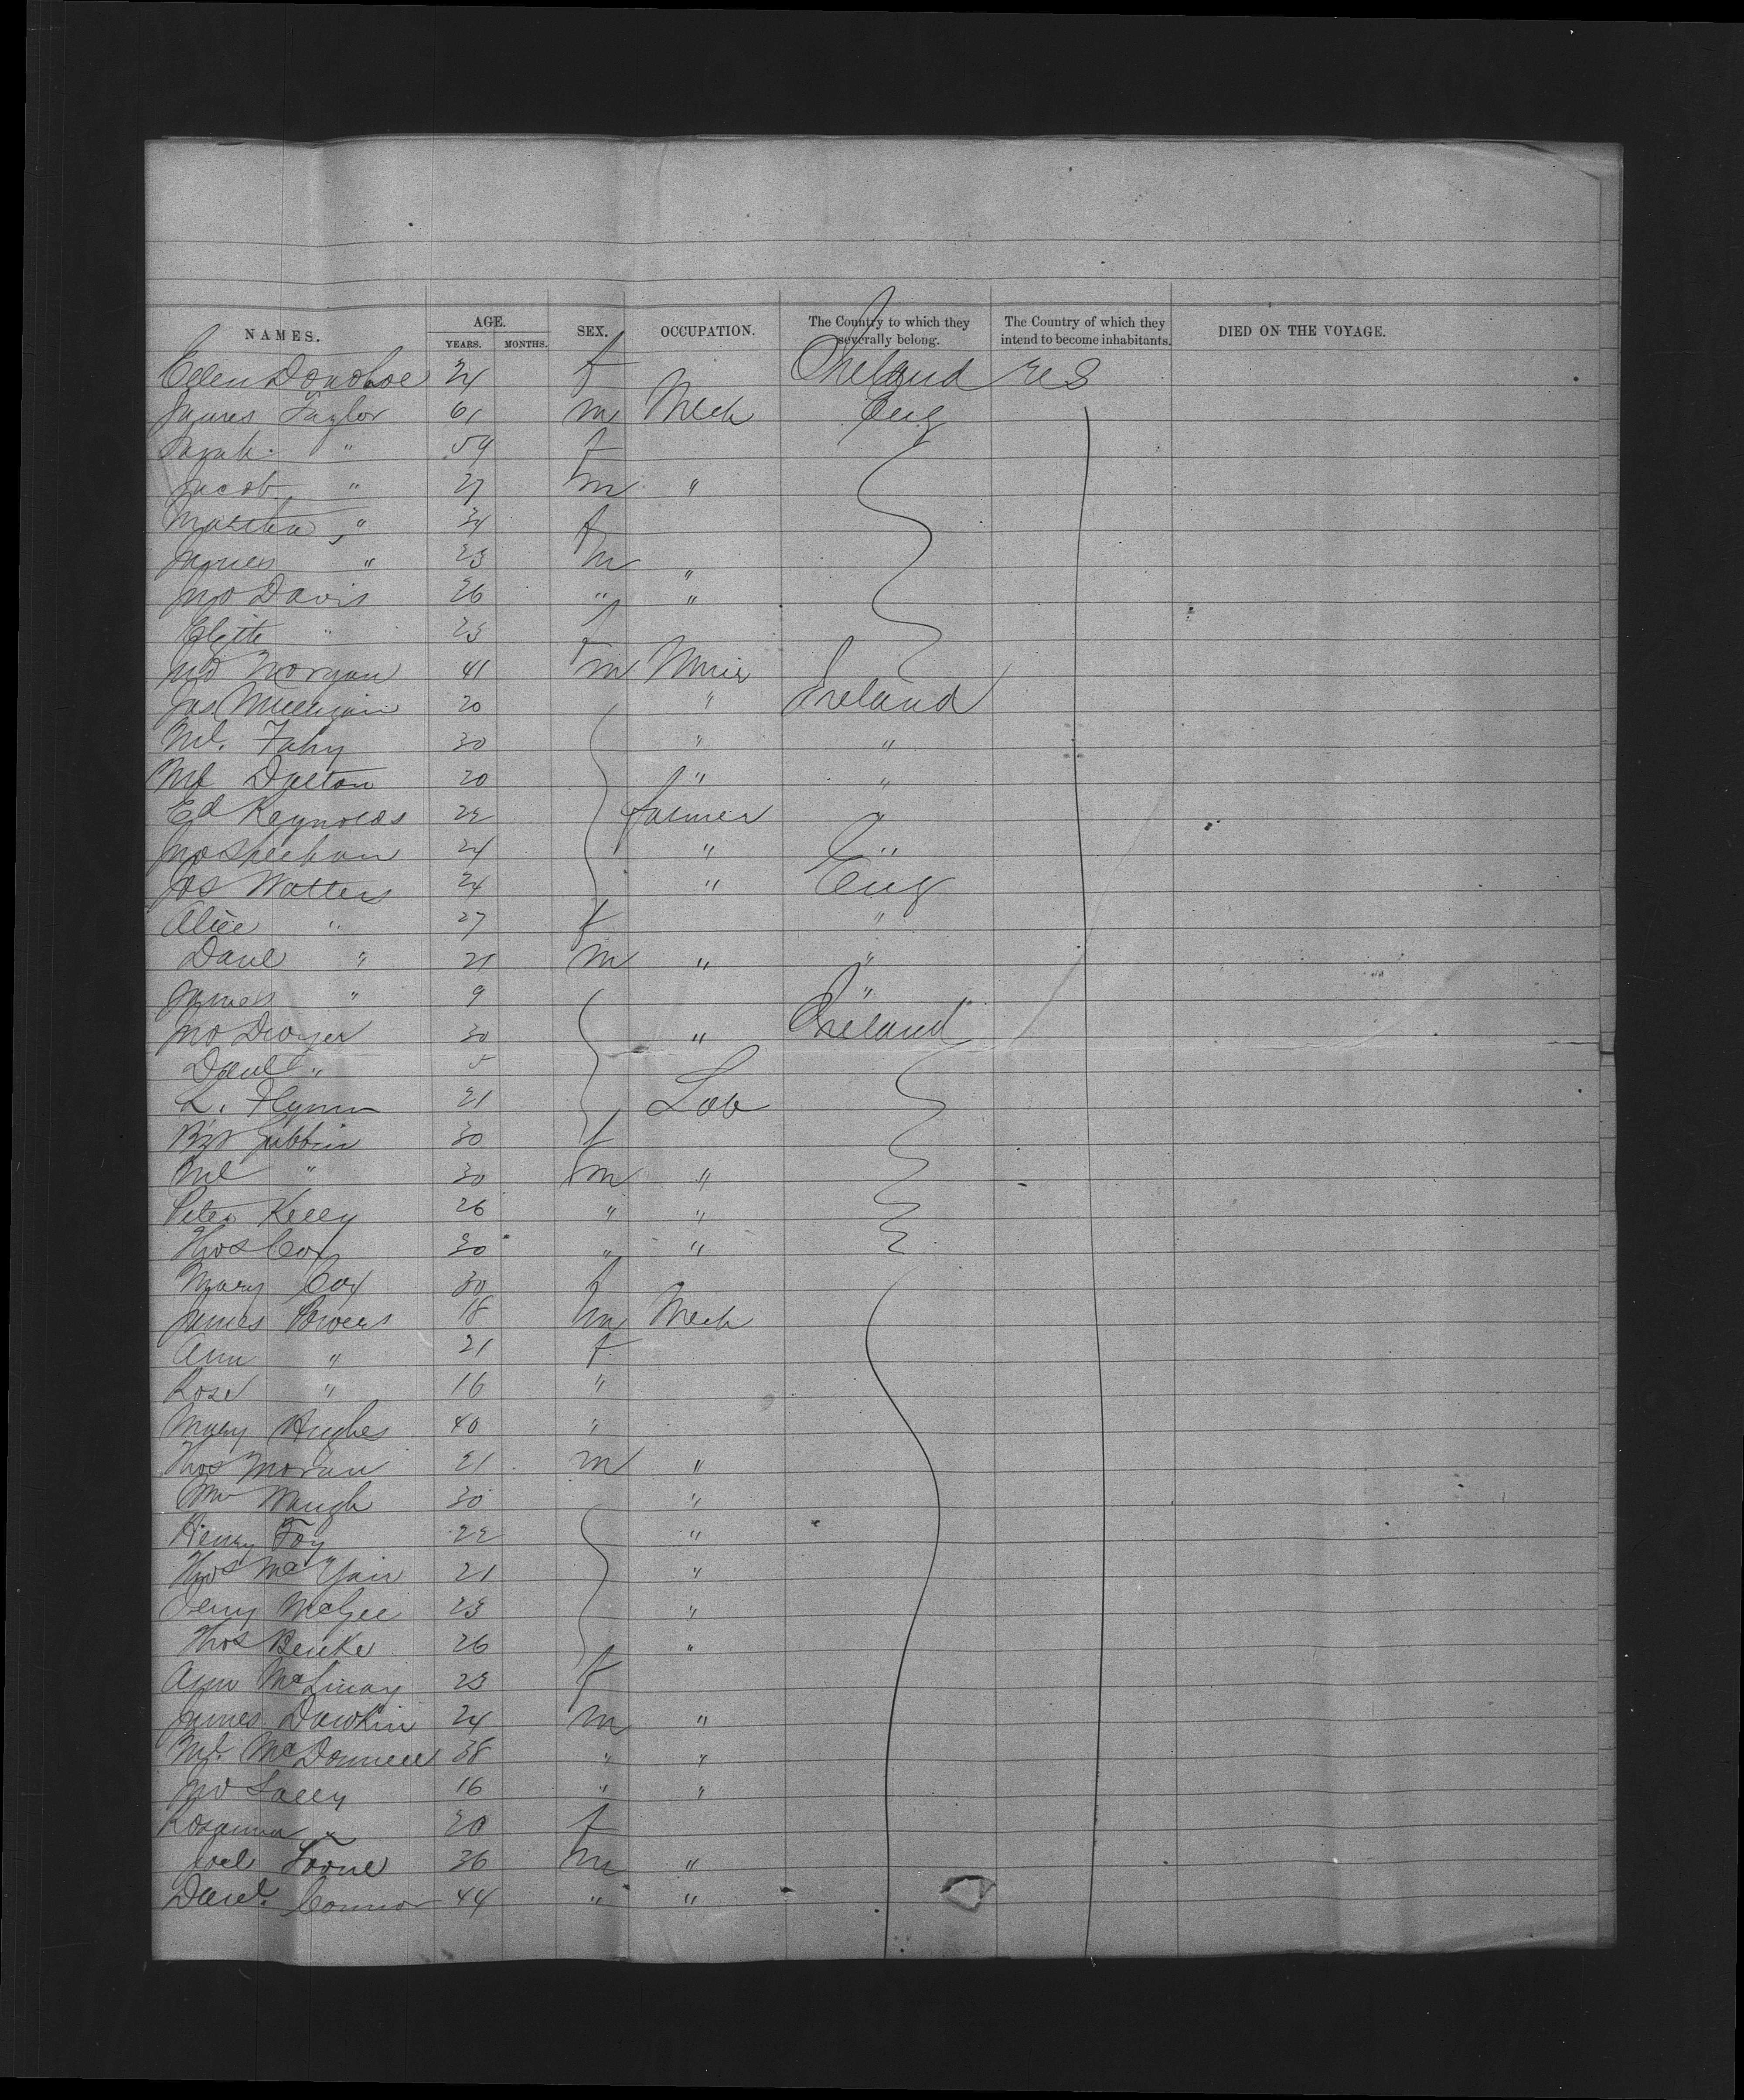 NAMES. AGE. YEARS. MONTHS. SEX. OCCUPATION. The Country to which they severally belong. The Country of which they intend to become inhabitants. DIED ON THE VOYAGE.
Ellen Donohoe 24 f Ireland US
James Taylor 61 m Mech Eng
Sarah " 59 f
Jacob " 27 m "
Martha " 34 f
James " 23 m "
Jno Davis 26 " "
Elizth " 23 f
Jno Morgan 41 m Miner
Jas Mulligan 20 " Ireland
Ml. Fahy 30 " "
Ml Dalton 20 " "
Ed Reynolds 22 farmer "
Jno Sheehan 24 " "
Jos Watters 24 " Eng
Alice " 27 f "
Danl " 21 m " "
James " 9 "
Jno Dwyer 30 " Ireland
Danl " 5
L. Flynn 21 Lab
Bgt Gibbin 30 f
Ml " 30 m "
Peter Kelly 26 " "
Thos Cox 30 " "
Mary Cox 30 f
James Powers 18 m Mech
Ann " 21 f
Rose " 16 "
Mary Hughes 40 "
Thos Moran 21 m "
Wm Waugh 30 "
Henry Foy 22 "
Thos Mc 21 "
McGee 23 "
Thos 26 "
Ann Mc 23 f
James Dawkin 24 m "
Ml. McDonnell 38 " "
Jno Lally 16 " "
Rosanna " 20 f
Joel 36 m "
Danl. Connor 44 " "